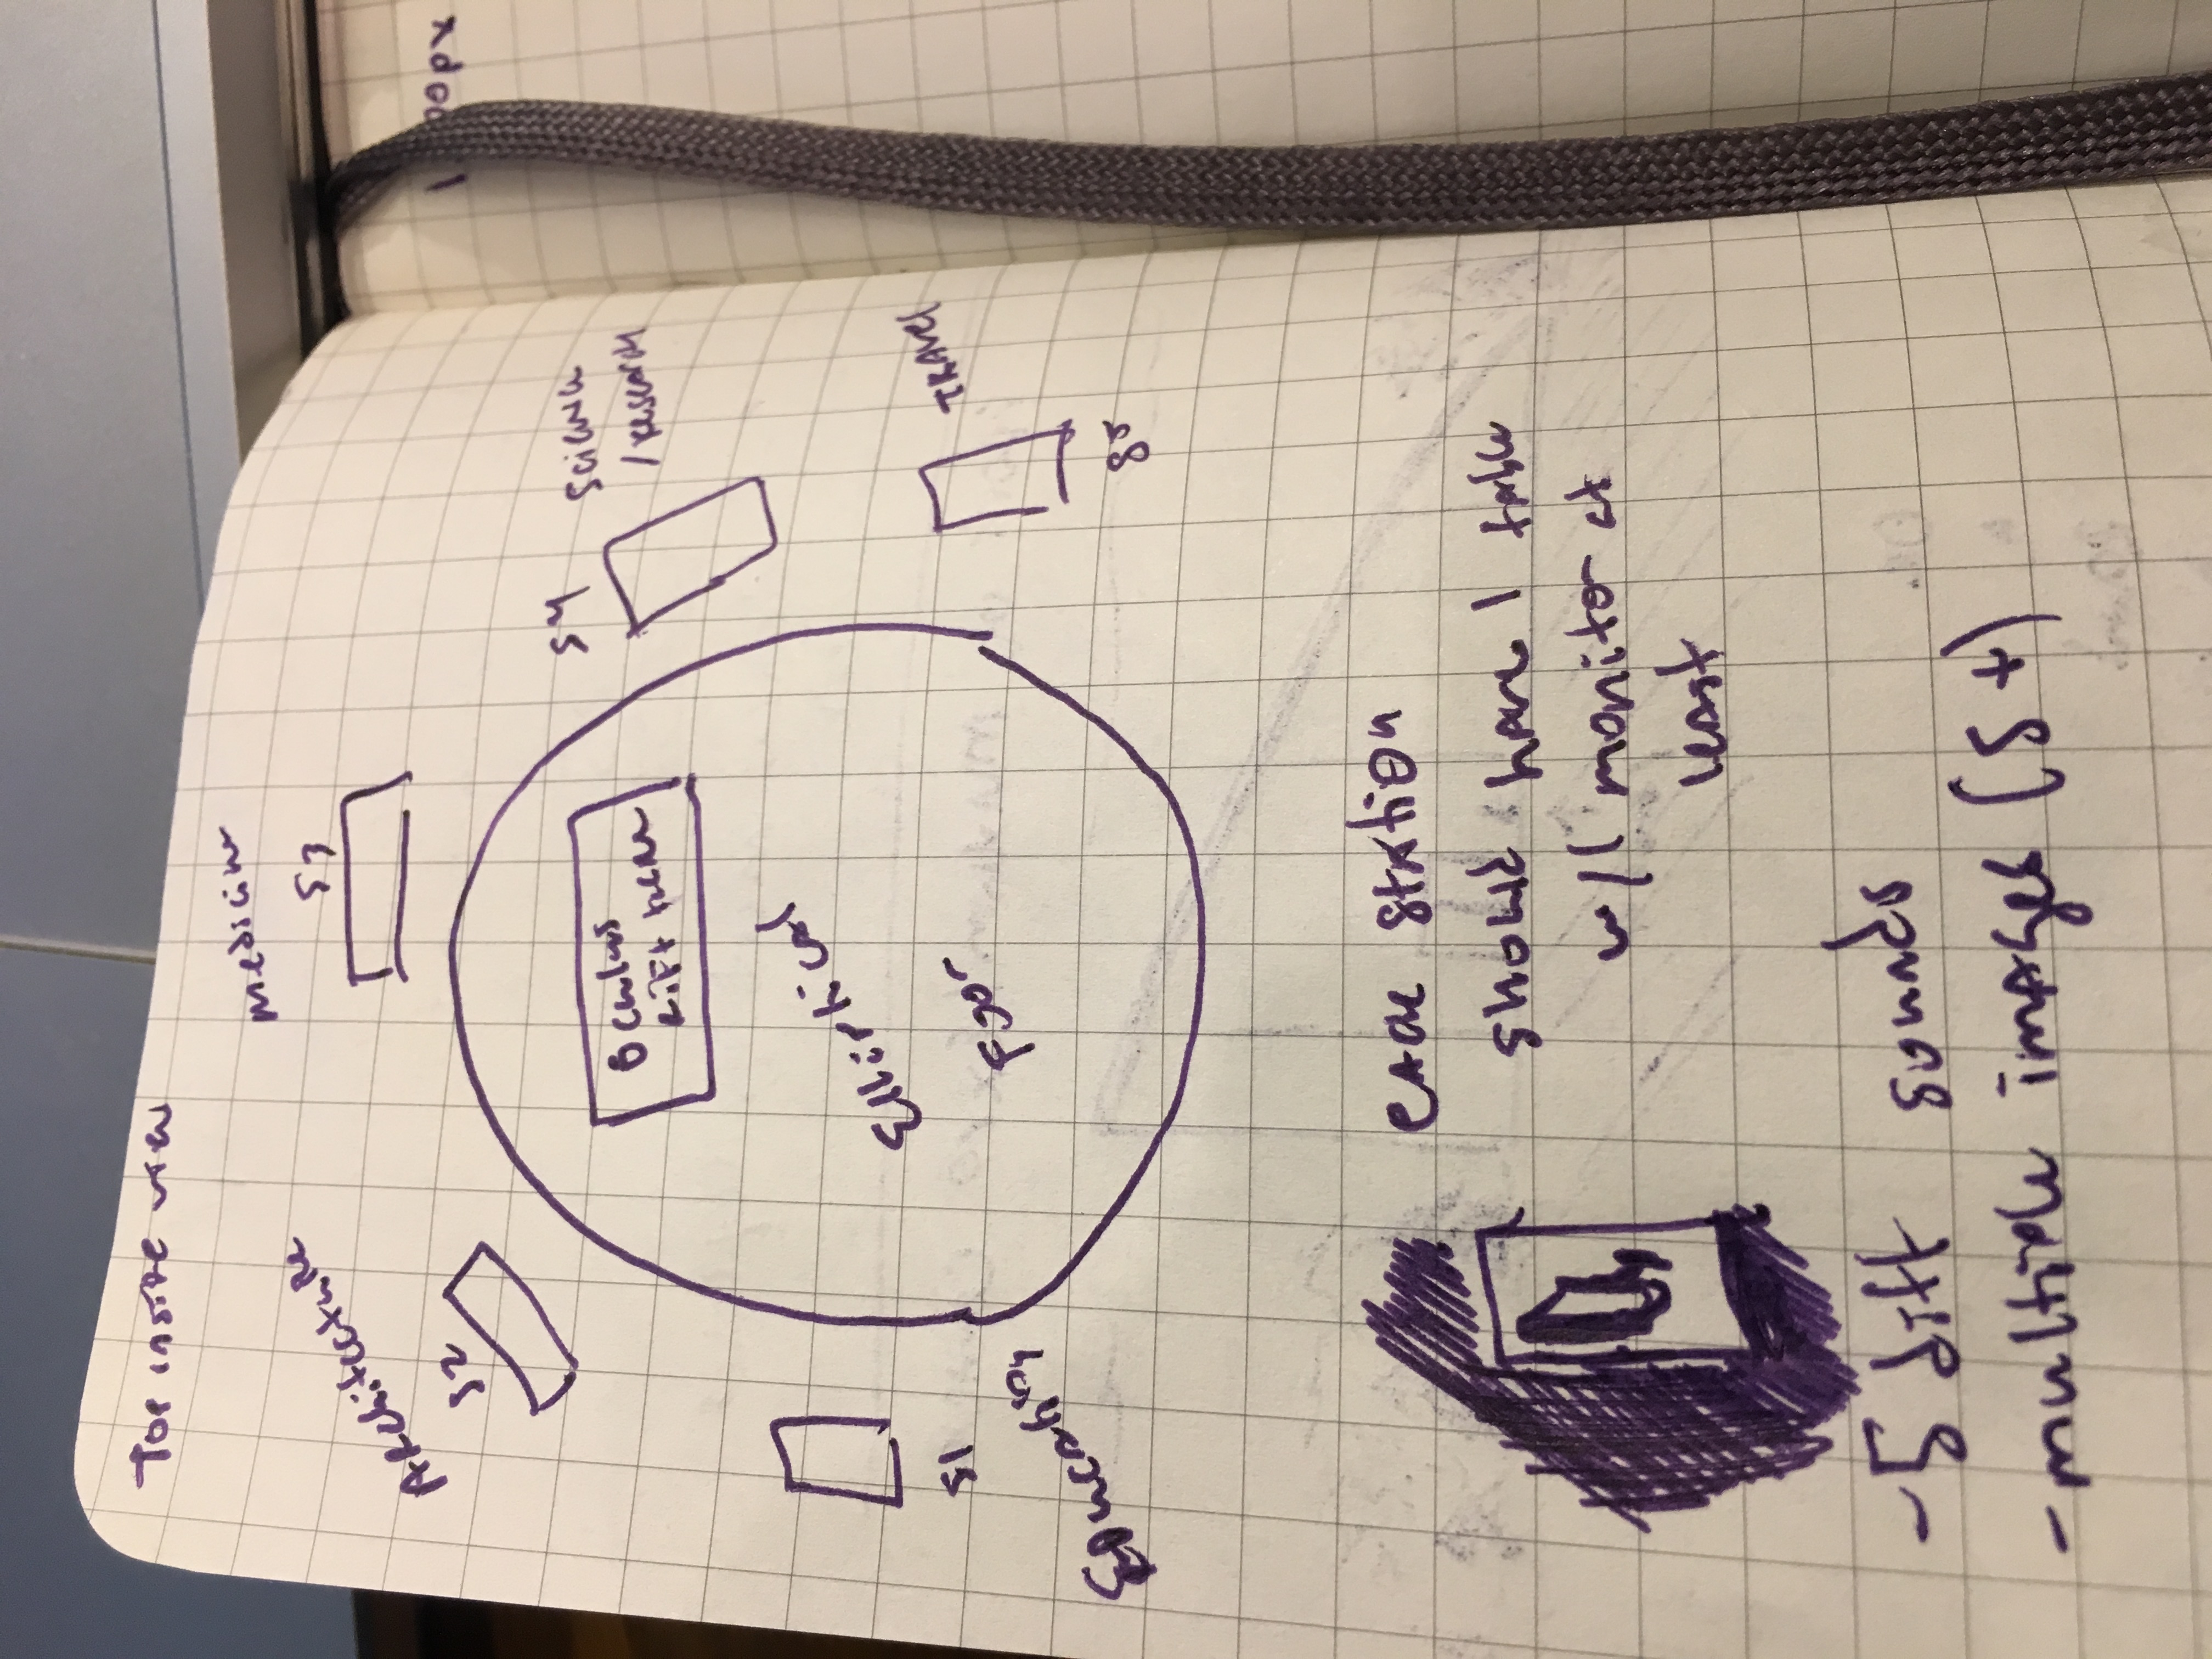 Top inside view
Medicine
S3
Architecture
S2
S4
Science
/research
Oculus
rift here
Elliptical
Foor
S1
Education
Travel
S5
each station
should have 1 table
w/1 monitor at
least
- 5 diff sounds
- multiple images (5+)
00px